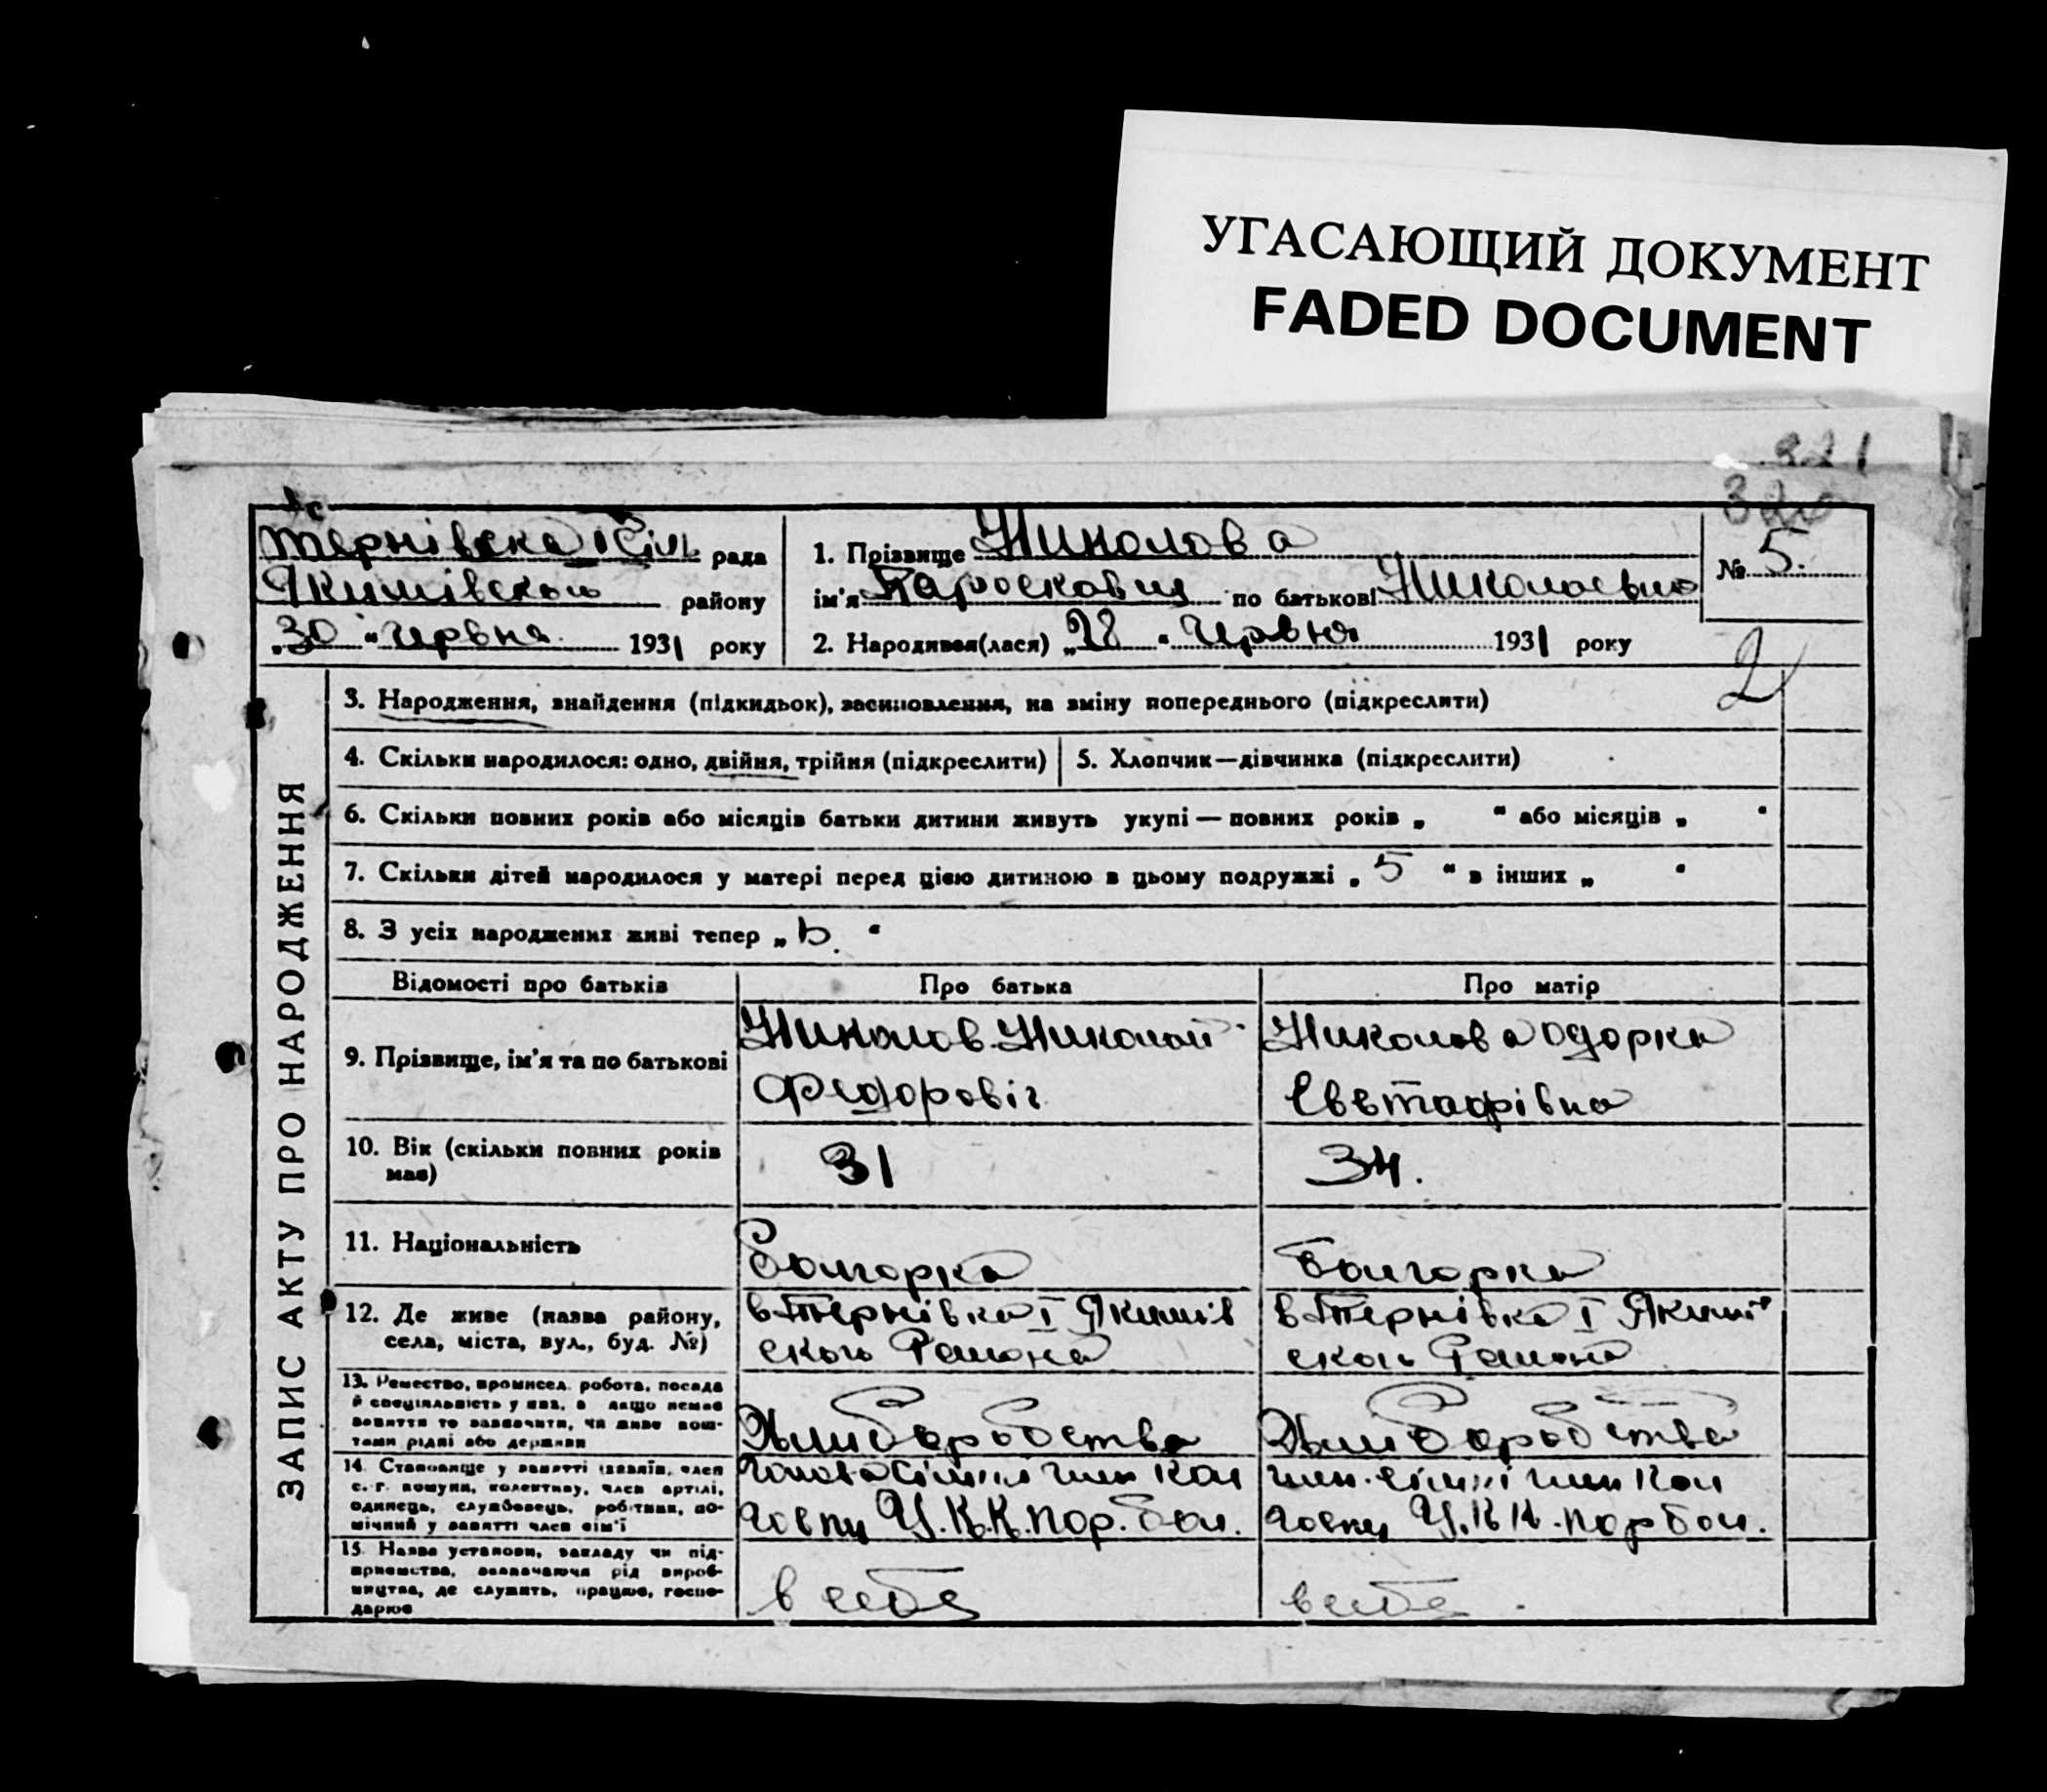 УГАСАЮЩИЙ ДОКУМЕНТ
FADED DOCUMENT
321
320
Тернівска I Сіль рада
Якимівского району
„30“ Червня 1931 року
1. Прізвище Николова
ім'я Параскавия по батькові Николаевна
2. Народився(лася) „28“ Червня 1931 року
№ 5.
2
ЗАПИС АКТУ ПРО НАРОДЖЕННЯ
3. Народження, знайдення (підкидьок), засиновлення, на зміну попереднього (підкреслити)
4. Скільки народилося: одно, двійня, трійня (підкреслити)
5. Хлопчик—дівчинка (підкреслити)
6. Скільки повних років або місяців батьки дитини живуть укупі — повних років „ “ або місяців „ “
7. Скільки дітей народилося у матері перед цією дитиною в цьому подружжі „ 5 “ в інших „ “
8. З усіх народжених живі тепер „ 5. “
Відомості про батьків
Про батька
Про матір
9. Прізвище, ім'я та по батькові
Николов Николай
Федоровіч
Николова Одорка
Евстафівна
10. Вік (скільки повних років
має)
31
34.
11. Національність
Болгорка
Болгорка
12. Де живе (назва району,
села, міста, вул., буд. №)
в Тернівка I Якимів
ского Района
в Тернівка I Якимів
ского Района
13. Ремество, промисел, робота, посада
й спеціяльність у них, а якщо немає
заняття то зазначити, чи живе кош-
тами рідні або держави
Хлиборобства
Хлиборобства
14. Становище у занятті (хазяїн, член
с.-г. комуни, колективу, член артілі,
одинець, службовець, робітник, по-
мічний у занятті член сім'ї
голова сімьи член Кол
госпу Ц.К.К. пор. бол.
член сімьі член Кол
госпу Ц.К.К. пор бол.
15. Назва установи, закладу чи під-
приємства, зазначаючи рід вироб-
ництва, де служить, працює, госпо-
дарює
в себе
в себе